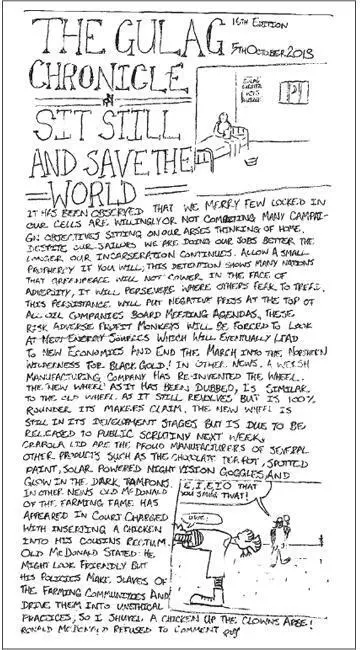 THE GULAG
CHRONICLE
16TH EDITION
5TH OCTOBER 2013
SIT STILL
AND SAVE THE
WORLD
IT HAS BEEN OBSERVED THAT WE MERRY FEW LOCKED IN
OUR CELLS ARE WILLINGLY OR NOT COMPLETING MANY CAMPAI-
GN OBJECTIVES SITTING ON OUR ARSES THINKING OF HOME.
DESPITE OUR JAILORS WE ARE DOING OUR JOBS BETTER THE
LONGER OUR INCARSERATION CONTINUES. ALLOW A SMALL
PROPHERCY IF YOU WILL; THIS DETENTION SHOWS MANY NATIONS
THAT GREENPEACE WILL NOT COWER IN THE FACE OF
ADVERSITY, IT WILL PERSEVERE WHERE OTHERS FEAR TO TREAD.
THIS PERSISTANCE WILL PUT NEGATIVE PRESS AT THE TOP OF
ALL OIL COMPANIES BOARD MEETING AGENDAS, THESE
RISK ADVERSE PROFIT MONKEYS WILL BE FORCED TO LOOK
AT NEW ENERGY SOURCES WHICH WILL EVENTUALLY LEAD
TO NEW ECONOMIES AND END THE MARCH INTO THE NORTHERN
WILDERNESS FOR 'BLACK GOLD'. IN OTHER NEWS. A WELSH
MANUFACTURING COMPANY HAS RE-INVENTED THE WHEEL.
THE 'NEW WHEEL' AS IT HAS BEEN DUBBED, IS SIMILAR
TO THE OLD WHEEL AS IT STILL REVOLVES BUT IS 100%
ROUNDER ITS MAKERS CLAIM. THE NEW WHEEL IS
STILL IN ITS DEVELOPMENT STAGES BUT IS DUE TO BE
RELEASED TO PUBLIC SCRUTINY NEXT WEEK,
CRAPOLA LTD ARE THE PROUD MANUFACTURERS OF SEVERAL
OTHER PRODUCTS SUCH AS THE CHOCOLATE TEA POT, SPOTTED
PAINT, SOLAR POWERED NIGHT VISION GOGGLES AND
GLOW IN THE DARK TAMPONS.
IN OTHER NEWS OLD MCDONALD
OF THE FARMING FAME HAS
APPEARED IN COURT CHARGED
WITH INSERTING A CHICKEN
INTO HIS COUSINS RECTUM.
OLD MCDONALD STATED: HE
MIGHT LOOK FRIENDLY BUT
HIS POLICIES MAKE SLAVES OF
THE FARMING COMMUNITIES AND
DRIVE THEM INTO UNETHICAL
PRACTICES, SO I SHUVEL A CHICKEN UP THE CLOWNS ARSE!
RONALD MCDONALD REFUSED TO COMMENT
E,I,E,I,O THAT
YOU SMUG TWAT!